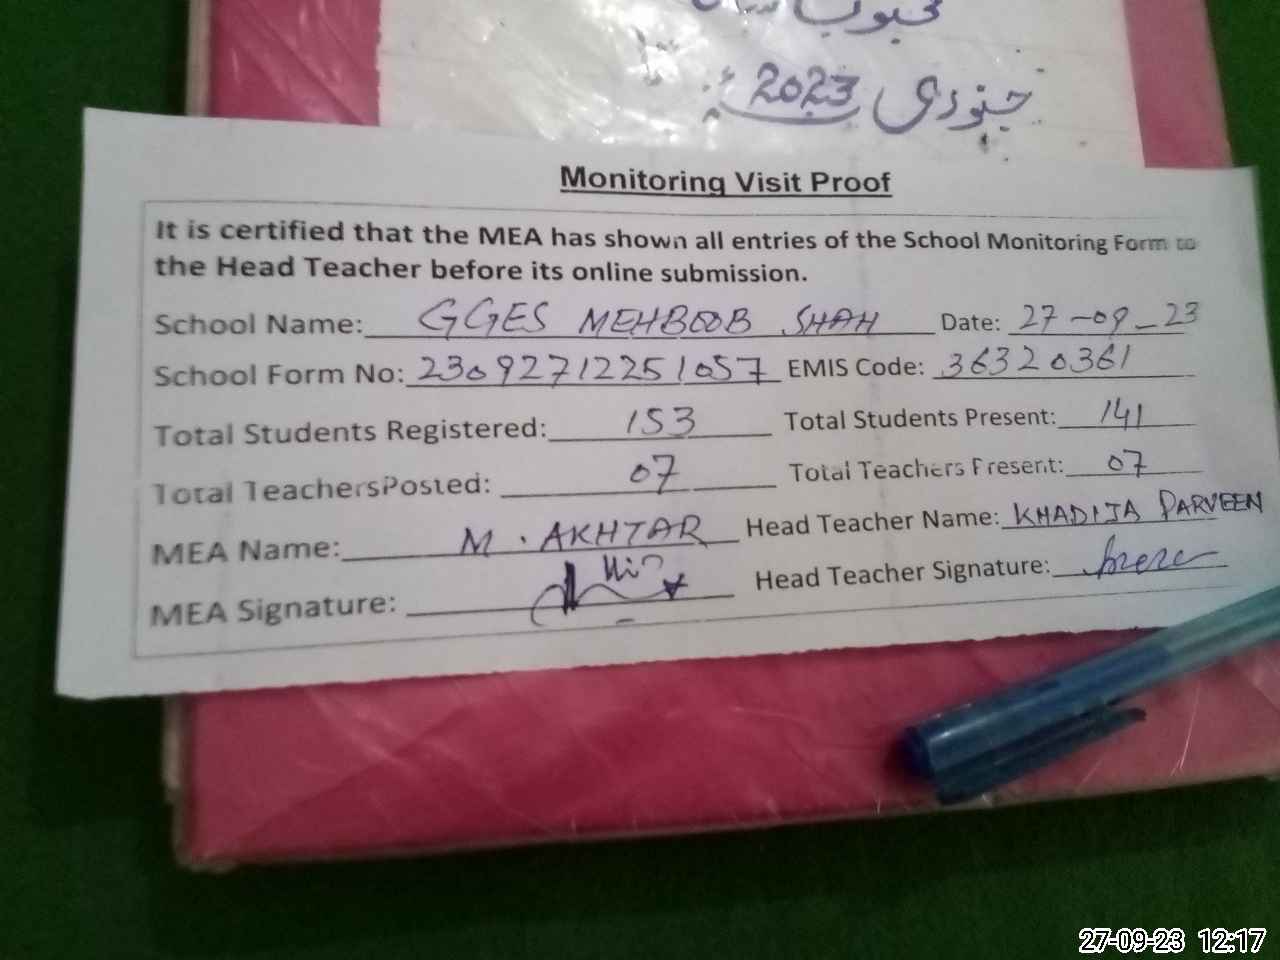 محبوب
جنوری 2023
Monitoring Visit Proof
It is certified that the MEA has shown all entries of the School Monitoring Form to
the Head Teacher before its online submission.
School Name: GGES MEHBOOB SHAH Date: 27-09-23
School Form No: 230927122251057 EMIS Code: 36320361
Total Students Registered: 153 Total Students Present: 141
Total TeachersPosted: 07 Total Teachers Present: 07
MEA Name: M. AKHTAR Head Teacher Name: KHADIJA PARVEEN
MEA Signature: Head Teacher Signature:
27-09-23 12:17